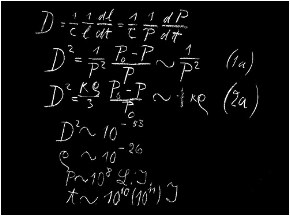 D = 1/c 1/l dl/dt = 1/c 1/P dP/dt
D² = 1/P² P₀-P/P ~ 1/P² (1a)
D² = κρ/3 P₀-P/P₀ ~ ⅓ κρ (2a)
D² ~ 10⁻⁵³
ρ ~ 10⁻²⁶
P ~ 10⁸ L.J
t ~ 10¹⁰(10¹¹) J